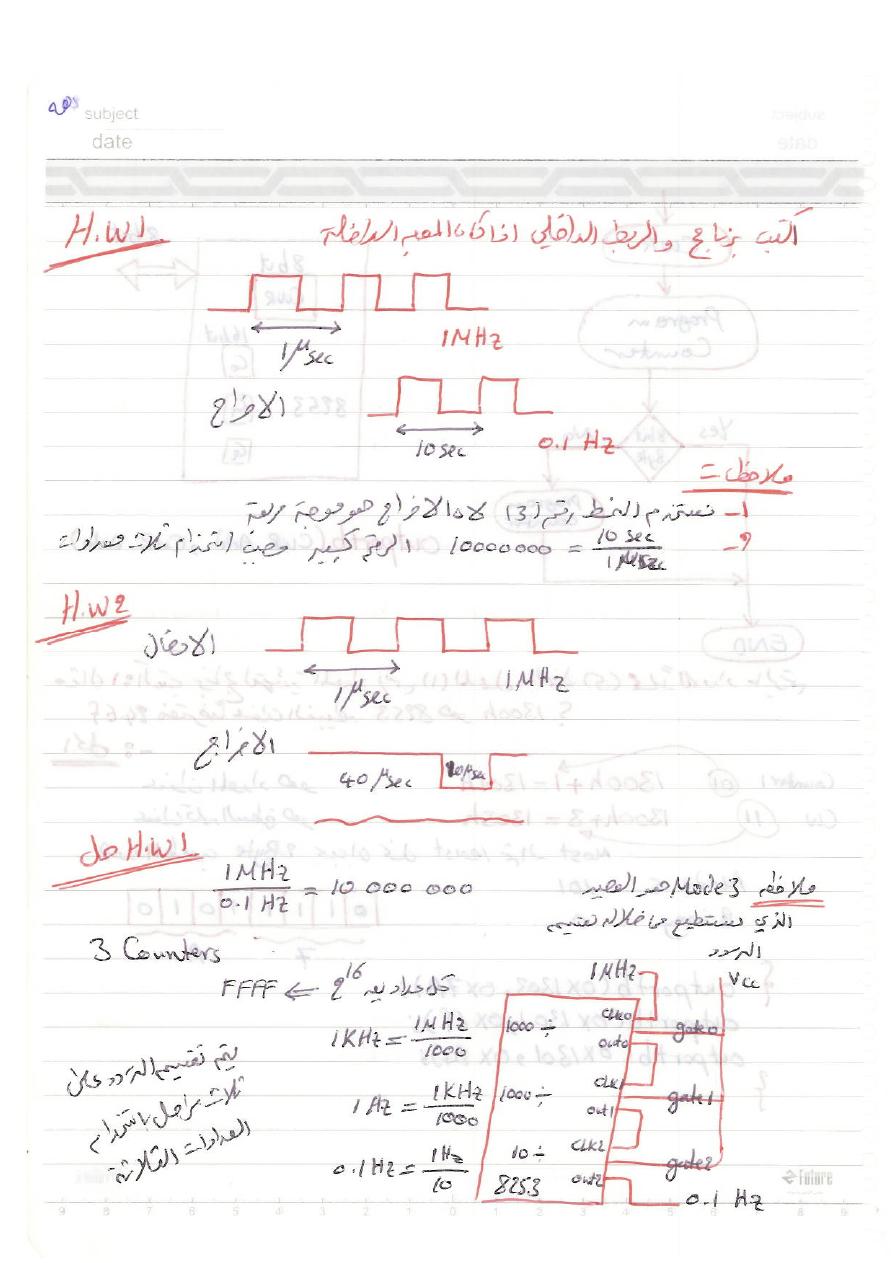 subject
date
H.W1
اكتب برنامج والربط الداخلي اذا كانت الموجه الداخلة
1 μsec
1MHz
الاخراج
10 sec
0.1 Hz
ملاحظات
1- نستخدم النمط رقم (3) لان الاخراج هو موجة مربعة
2- 10 sec / 1 μsec = 10000000 الرقم كبير حيث استخدام ثلاث عدادات
H.W2
الادخال
1 μsec
1MHz
الاخراج
40 μsec
10 μsec
حل H.W1
1MHz / 0.1 Hz = 10 000 000
ملاحظه Mode 3 هو الوحيد
الذي نستطيع من خلاله تقسيم
التردد
3 Counters
كل عداد يعد 2^16 ⇐ FFFF
1KHz = 1MHz / 1000
1 Hz = 1KHz / 1000
0.1 Hz = 1Hz / 10
يتم تقسيم التردد على
ثلاث مراحل باستخدام
العدادات الثلاثة
1MHz
Vcc
1000 ÷ CLK0 gate0
out0
1000 ÷ CLK1 gate1
out1
10 ÷ CLK2 gate2
8253 out2
0.1 Hz